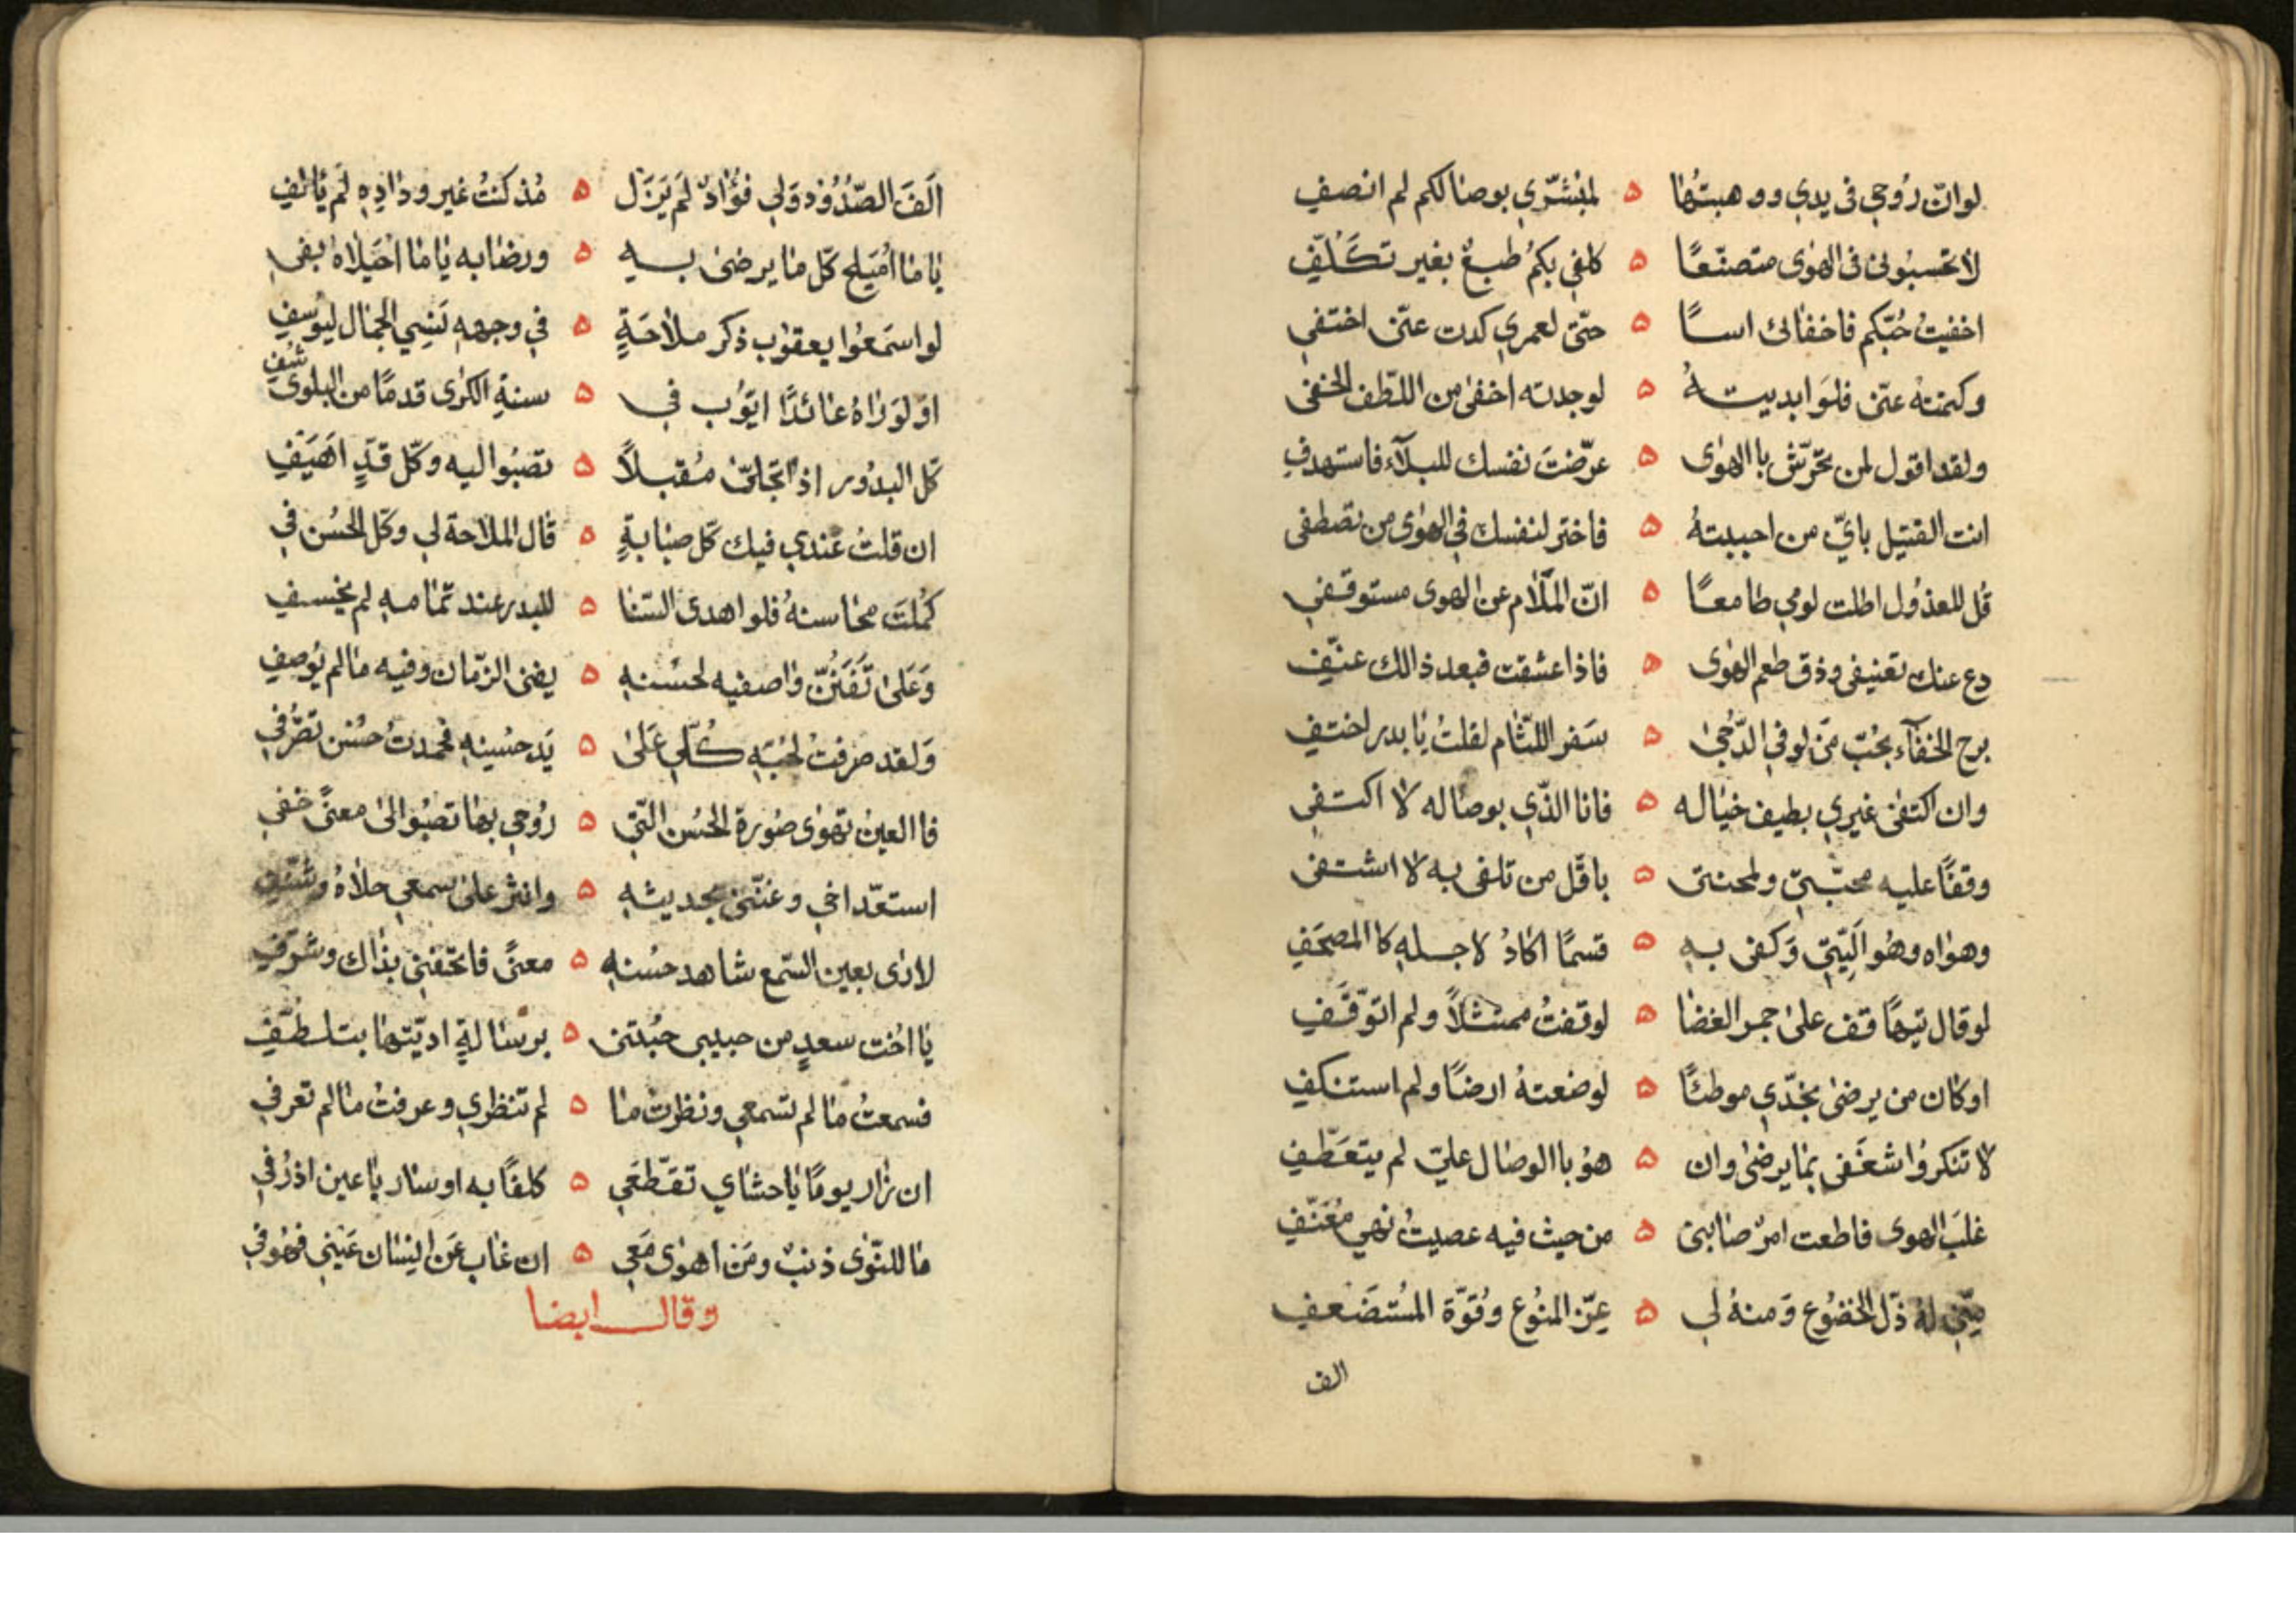 لو انّ رُوحي في يدي ووهبتُها ۵ لمبشّري بوصالكم لم انصفِ
لا تحسبُوني في الهوٰى متصنّعًا ۵ كلفي بكمُ طبعٌ بغير تكَلُّفِ
اخفيتُ حُبّكم فاخفاني اسًا ۵ حتّى لعمري كدت عنّي اختفي
وكتمتهُ عنّي فلوَ ابديتهُ ۵ لوجدته اخفىٰ من اللّطف الخفي
ولقد اقول لمن تحرّش باالهوٰى ۵ عرّضتَ نفسك للبلآء فاستهدفِ
انت القتيل بايّ من احببتهُ ۵ فاختر لنفسك في الهوٰى من تصطفي
قُل للعذوُل اطلت لومي طامعًا ۵ انّ المَلَام عن الهوى مستوقفي
دع عنك تعنيفي وذق طعم الهوٰى ۵ فاذا عشقت فبعد ذالك عنّفِ
برح الخفآء بحُبّ مَن لو في الدّجىٰ ۵ سَفر اللثّام لقلتُ يٰا بدر اختفِ
وان اكتفىٰ غيري بطيف خيٰاله ۵ فانا الذّي بوصاله لا اكتفي
وقفًا عليه محبّتي ولمحنتي ۵ باقّل من تلفي به لا اشتفي
وهوٰاه وهُو اَليّتي وَكفى بهِ ۵ قسمًا اكادُ لاجلهِ كاالمصحَفِ
لو قال تيهًا قف علىٰ جمر الغضٰا ۵ لوقفتُ ممتثلاً ولم اتوّقَفِ
او كان من يرضىٰ بخدّي موطئًا ۵ لوضعتهُ ارضًا ولم استنكفِ
لا تنكروُا شغَفي بمٰا يرضىٰ وان ۵ هوُ باالوصٰال عليّ لم يتعَطّفِ
غلبَ الهوى فاطعت امرَ صٰابتي ۵ من حيث فيه عصيتُ نهي مُعَنّفِ
منّي لهُ ذّل الخضوُع وَمنهُ لي ۵ عِزّ المنوُع وقُوّة المُستضَعفِ
الف
اَلَفَ الصّدُوُد وَلي فوُٰادٌ لَم يَزَل ۵ مُذ كنتُ غير ودٰادِهِ لَم يٰالفِ
يٰا مٰا اُمَيلح كلّ مٰا يرضىٰ بهِ ۵ ورضٰابه يٰا مٰا اُحَيلاهُ بفي
لو اسمَعُوا يعقوُب ذكر ملاٰحَةٍ ۵ في وجههِ نَسِي الجمٰال ليوُسفِ
او لَو رٰاهُ عٰائدًا ايّوُب في ۵ سنةِ الكرٰى قدمًا من البلوىٰ شُفي
كّل البدوُر اذا تجَلّىٰ مُقبلاً ۵ تصبُوا اليه وكّل قَدٍّ اَهيَفِ
ان قلتُ عندي فيك كّل صبٰابةٍ ۵ قال الملاحة لي وكّل الحُسُن في
كمُلتَ محٰاسنهُ فلو اهدى السّنا ۵ للبدر عند تمٰامهِ لم يخسفِ
وَعَلىٰ تَفَنُنّ وٰاصفيه لحُسنهِ ۵ يفنى الزّمٰان وفيه مٰا لم يوُصفِ
وَلقد صرفتُ لحُبّهِ كُلّي عَلىٰ ۵ يَد حسُينهِ فحمدتُ حُسُن تصَرُّفي
فاالعينُ تهوٰى صُورة الحُسُن الّتي ۵ رُوحي بهٰا تصبُوا الىٰ معنًى خفي
استعّد اخي وغنّني بحديثهِ ۵ وانثر علىٰ سمعي حلاٰهُ وشنّف
لارٰى بعين السّمع شاهد حُسنهِ ۵ معنًى فاتحفني بذٰاك وشرّفِ
يٰا اُخت سعدٍ من حبيبي جئتني ۵ برسٰالةٍ ادّيتها بتلطّفِ
فسمعتُ مٰا لم تسمعي ونظرتُ مٰا ۵ لم تنظري وعرفتُ مٰا لم تعرفي
ان زٰار يومًا يٰا حشٰاي تقَطّعَي ۵ كلفًا به او سٰار يٰا عين اذرُفي
مٰا للنّوٰى ذنبٌ ومَن اهوٰى مَعي ۵ ان غٰاب عَن اِنسٰان عَيني فهُو في
وقال ايضا